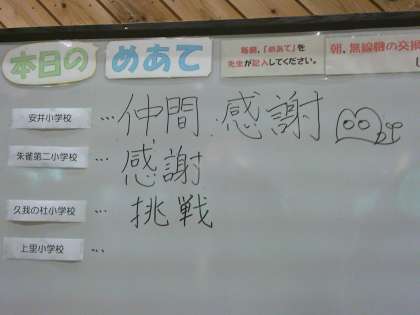 本日の めあて
毎朝、「めあて」を
先生が記入してください。
朝、無線機の交換
安井小学校 … 仲間、感謝
朱雀第二小学校 … 感謝
久我の杜小学校 … 挑戦
上里小学校 …